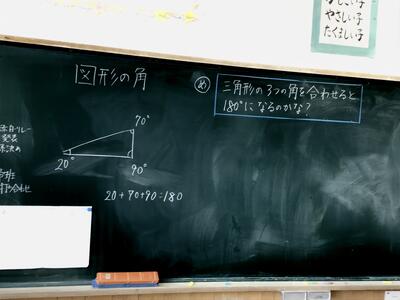 やさしい子
たくましい子
図形の角
め 三角形の3つの角を合わせると
180°になるのかな?
70°
20°
90°
20+70+90=180